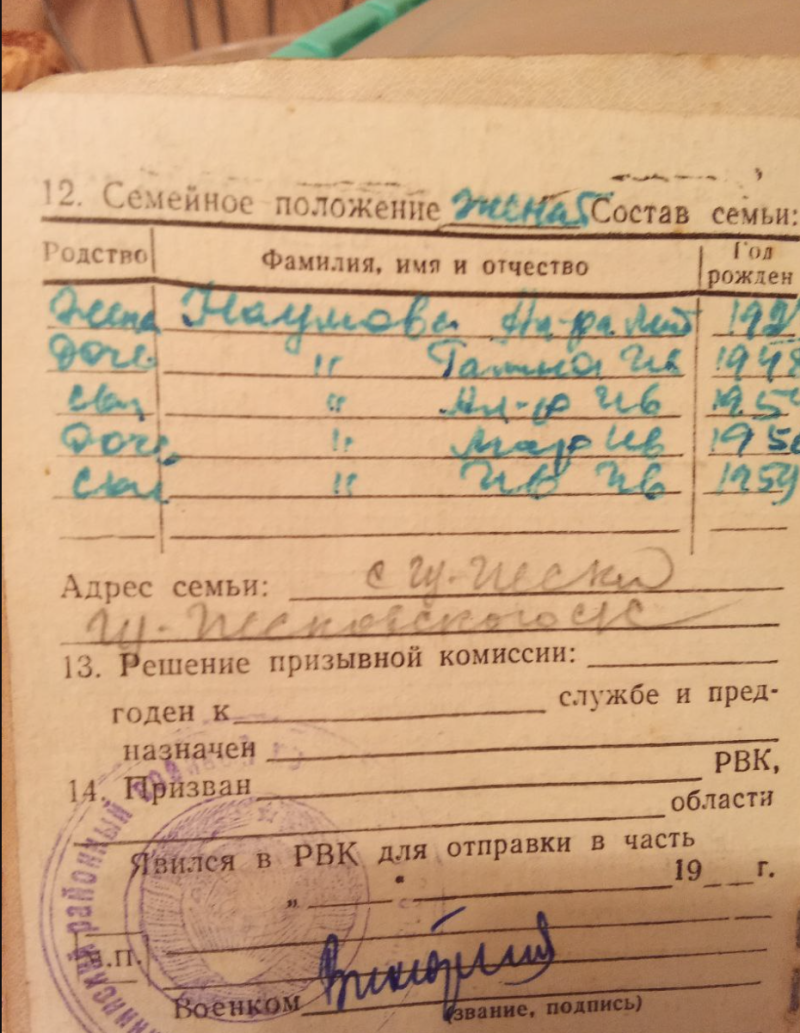 12. Семейное положение женат Состав семьи:
Родство Фамилия, имя и отчество Год рожден
Жена Наумова Ал-ра 192
Дочь " Галина Ив 194
сын " Ал-р Ив 195
Дочь " Мар Ив 195
сын " Ив Ив 1959
Адрес семьи: с Гу-Пески
Гу-Песковского с/с
13. Решение призывной комиссии:
годен к службе и пред-
назначен
14. Призван РВК,
области
Явился в РВК для отправки в часть
" " 19 г.
м.п.
Военком
(звание, подпись)
районный